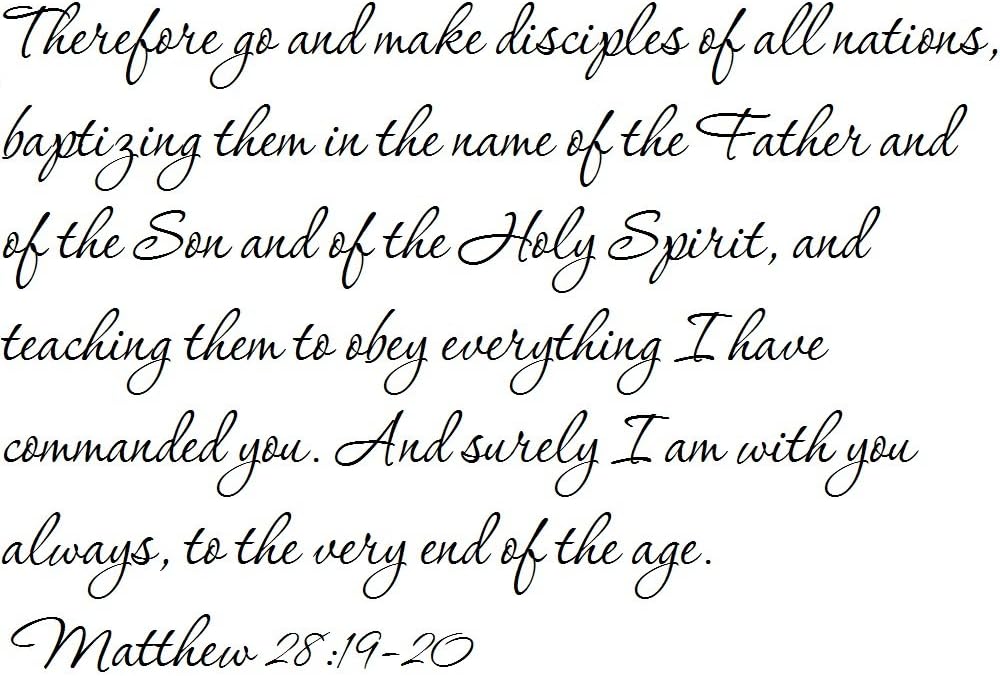 Therefore go and make disciples of all nations,
baptizing them in the name of the Father and
of the Son and of the Holy Spirit, and
teaching them to obey everything I have
commanded you. And surely I am with you
always, to the very end of the age.
Matthew 28:19-20